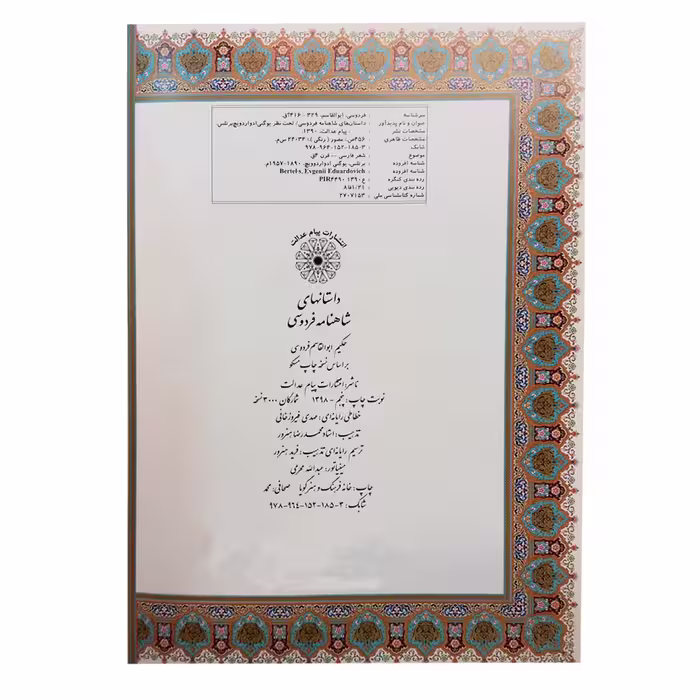 سرشناسه : فردوسی، ابوالقاسم، ۳۲۹ - ۴۱۶؟ق.
عنوان و نام پدیدآور : داستان‌های شاهنامه فردوسی/ تحت نظر یوگنی ادواردویچ برتلس.
مشخصات نشر : پیام عدالت، ۱۳۹۰.
مشخصات ظاهری : ۴۵۶ص.: مصور (رنگی)؛ ۳۴×۲۴ س‌م.
شابک : ۹۷۸-۹۶۴-۱۵۲-۱۸۵-۳
موضوع : شعر فارسی -- قرن ۴ق.
شناسه افزوده : برتلس، یوگنی ادواردوویچ، ۱۸۹۰-۱۹۵۷م.
شناسه افزوده : Bertel's, Evgenii Eduardovich
رده بندی کنگره : PIR۴۴۹۰ ۱۳۹۰
رده بندی دیویی : ۸فا۱/۲۱
شماره کتابشناسی ملی : ۲۷۰۷۱۵۳
انتشارات پیام عدالت
داستانهای
شاهنامه فردوسی
حکیم ابوالقاسم فردوسی
بر اساس نسخه چاپ مسکو
ناشر: انتشارات پیام عدالت
نوبت چاپ: پنجم - ۱۳۹۸ شمارگان ۳۰۰۰ نسخه
خطاطی رایانه‌ای: مهدی فیروزخانی
تذهیب: استاد محمدرضا هنرور
ترسیم رایانه‌ای تذهیب: فرید هنرور
مینیاتور: عبدالله محرمی
چاپ: خانه فرهنگ و هنر گویا صحافی: محمد
شابک: ۳-۱۸۵-۱۵۲-۹۶۴-۹۷۸